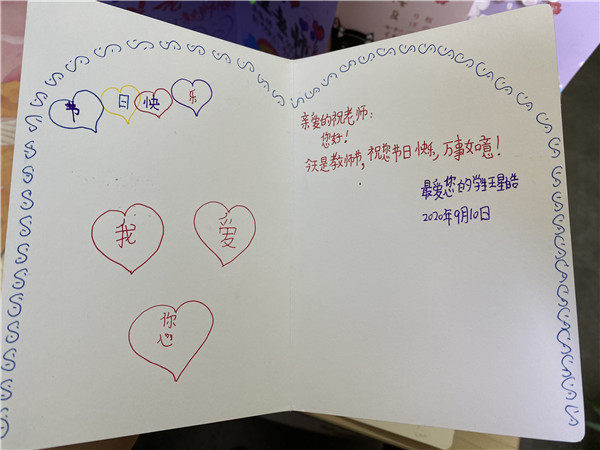 节日快乐
我爱
您
亲爱的祝老师：
您好！
今天是教师节，祝您节日快乐，万事如意！
最爱您的学生王星皓
2020年9月10日